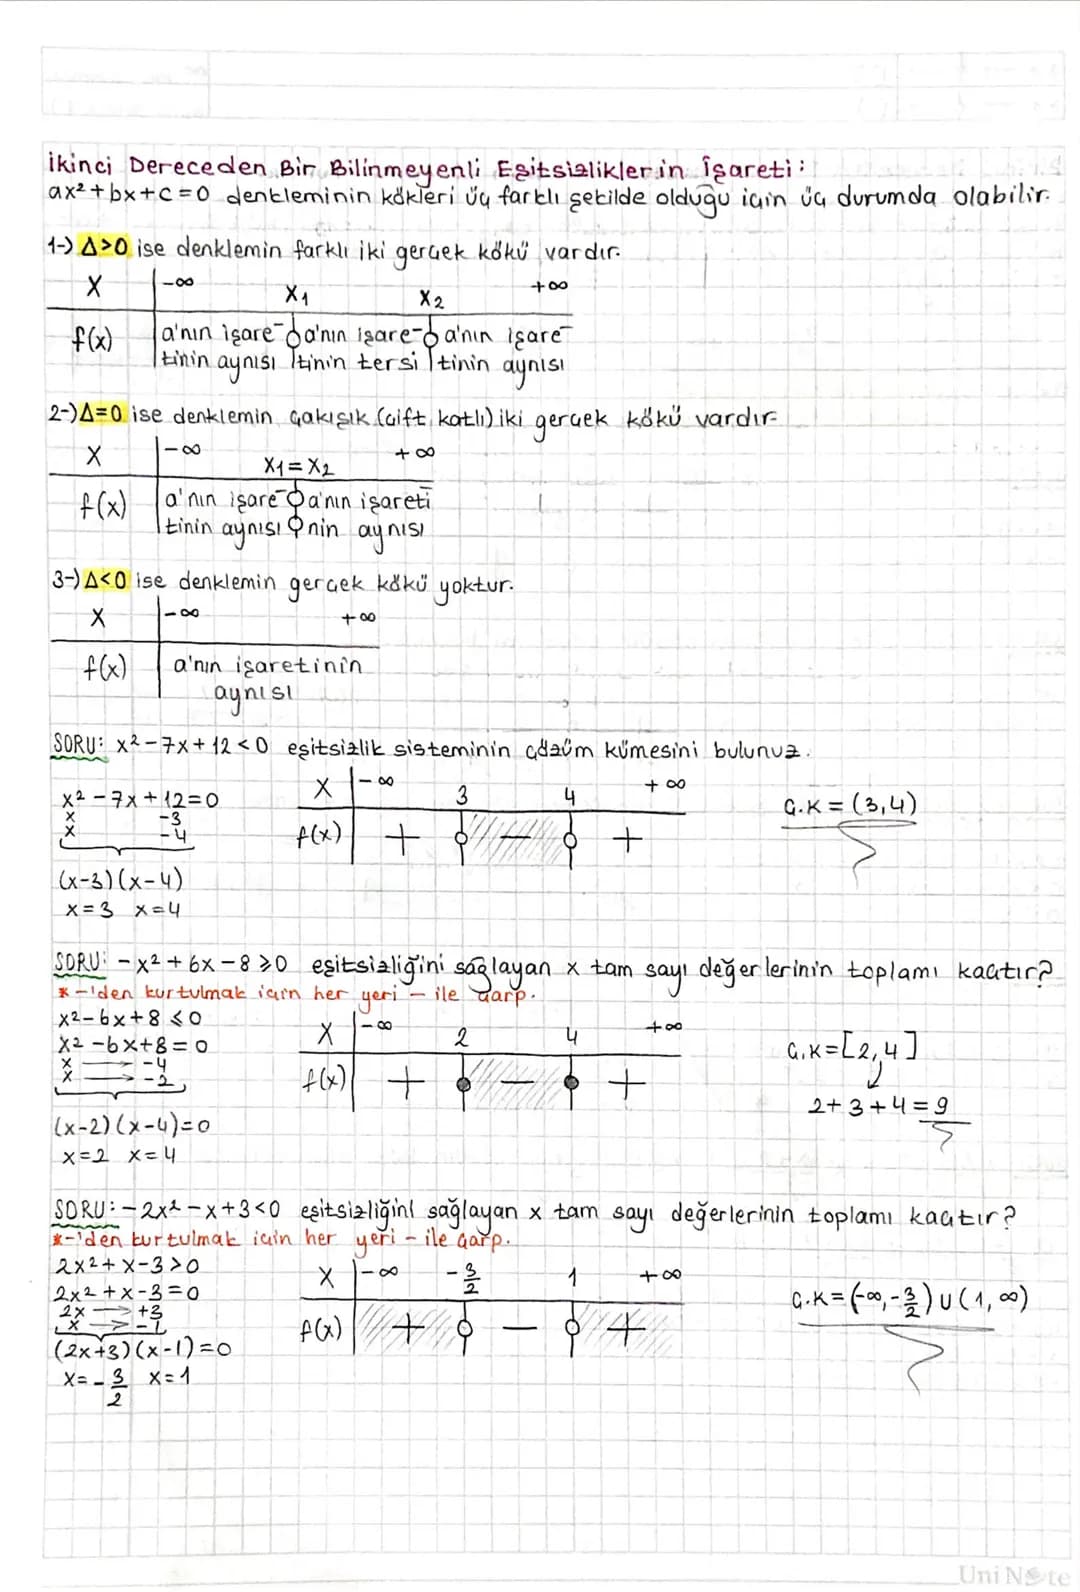 İkinci Dereceden Bir Bilinmeyenli Eşitsizliklerin İşareti:
ax²+bx+c=0 denkleminin kökleri üç farklı şekilde olduğu için üç durumda olabilir.
1-) Δ>0 ise denklemin farklı iki gerçek kökü vardır.
X -∞ X₁ X₂ +∞
f(x) a'nın işare- a'nın işare- a'nın işare-
tinin aynısı tinin tersi tinin aynısı
2-) Δ=0 ise denklemin çakışık (çift katlı) iki gerçek kökü vardır.
X -∞ X₁=X₂ +∞
f(x) a'nın işare- a'nın işareti
tinin aynısı nin aynısı
3-) Δ<0 ise denklemin gerçek kökü yoktur.
X -∞ +∞
f(x) a'nın işaretinin
aynısı
SORU: x²-7x+12<0 eşitsizlik sisteminin çözüm kümesini bulunuz.
x²-7x+12=0
x -3
x -4
(x-3)(x-4)
x=3 x=4
X -∞ 3 4 +∞
f(x) + - +
Ç.K=(3,4)
SORU: -x²+6x-8⩾0 eşitsizliğini sağlayan x tam sayı değerlerinin toplamı kaçtır?
*-'den kurtulmak için her yeri - ile çarp.
x²-6x+8⩽0
x²-6x+8=0
x → -4
x → -2
(x-2)(x-4)=0
x=2 x=4
X -∞ 2 4 +∞
f(x) + - +
Ç.K=[2,4]
2+3+4=9
SORU: -2x²-x+3<0 eşitsizliğini sağlayan x tam sayı değerlerinin toplamı kaçtır?
*-'den kurtulmak için her yeri - ile çarp.
2x²+x-3>0
2x²+x-3=0
2x → +3
x → -1
(2x+3)(x-1)=0
x=-3/2 x=1
X -∞ -3/2 1 +∞
f(x) + - +
Ç.K=(-∞,-3/2)∪(1,∞)
UniNote